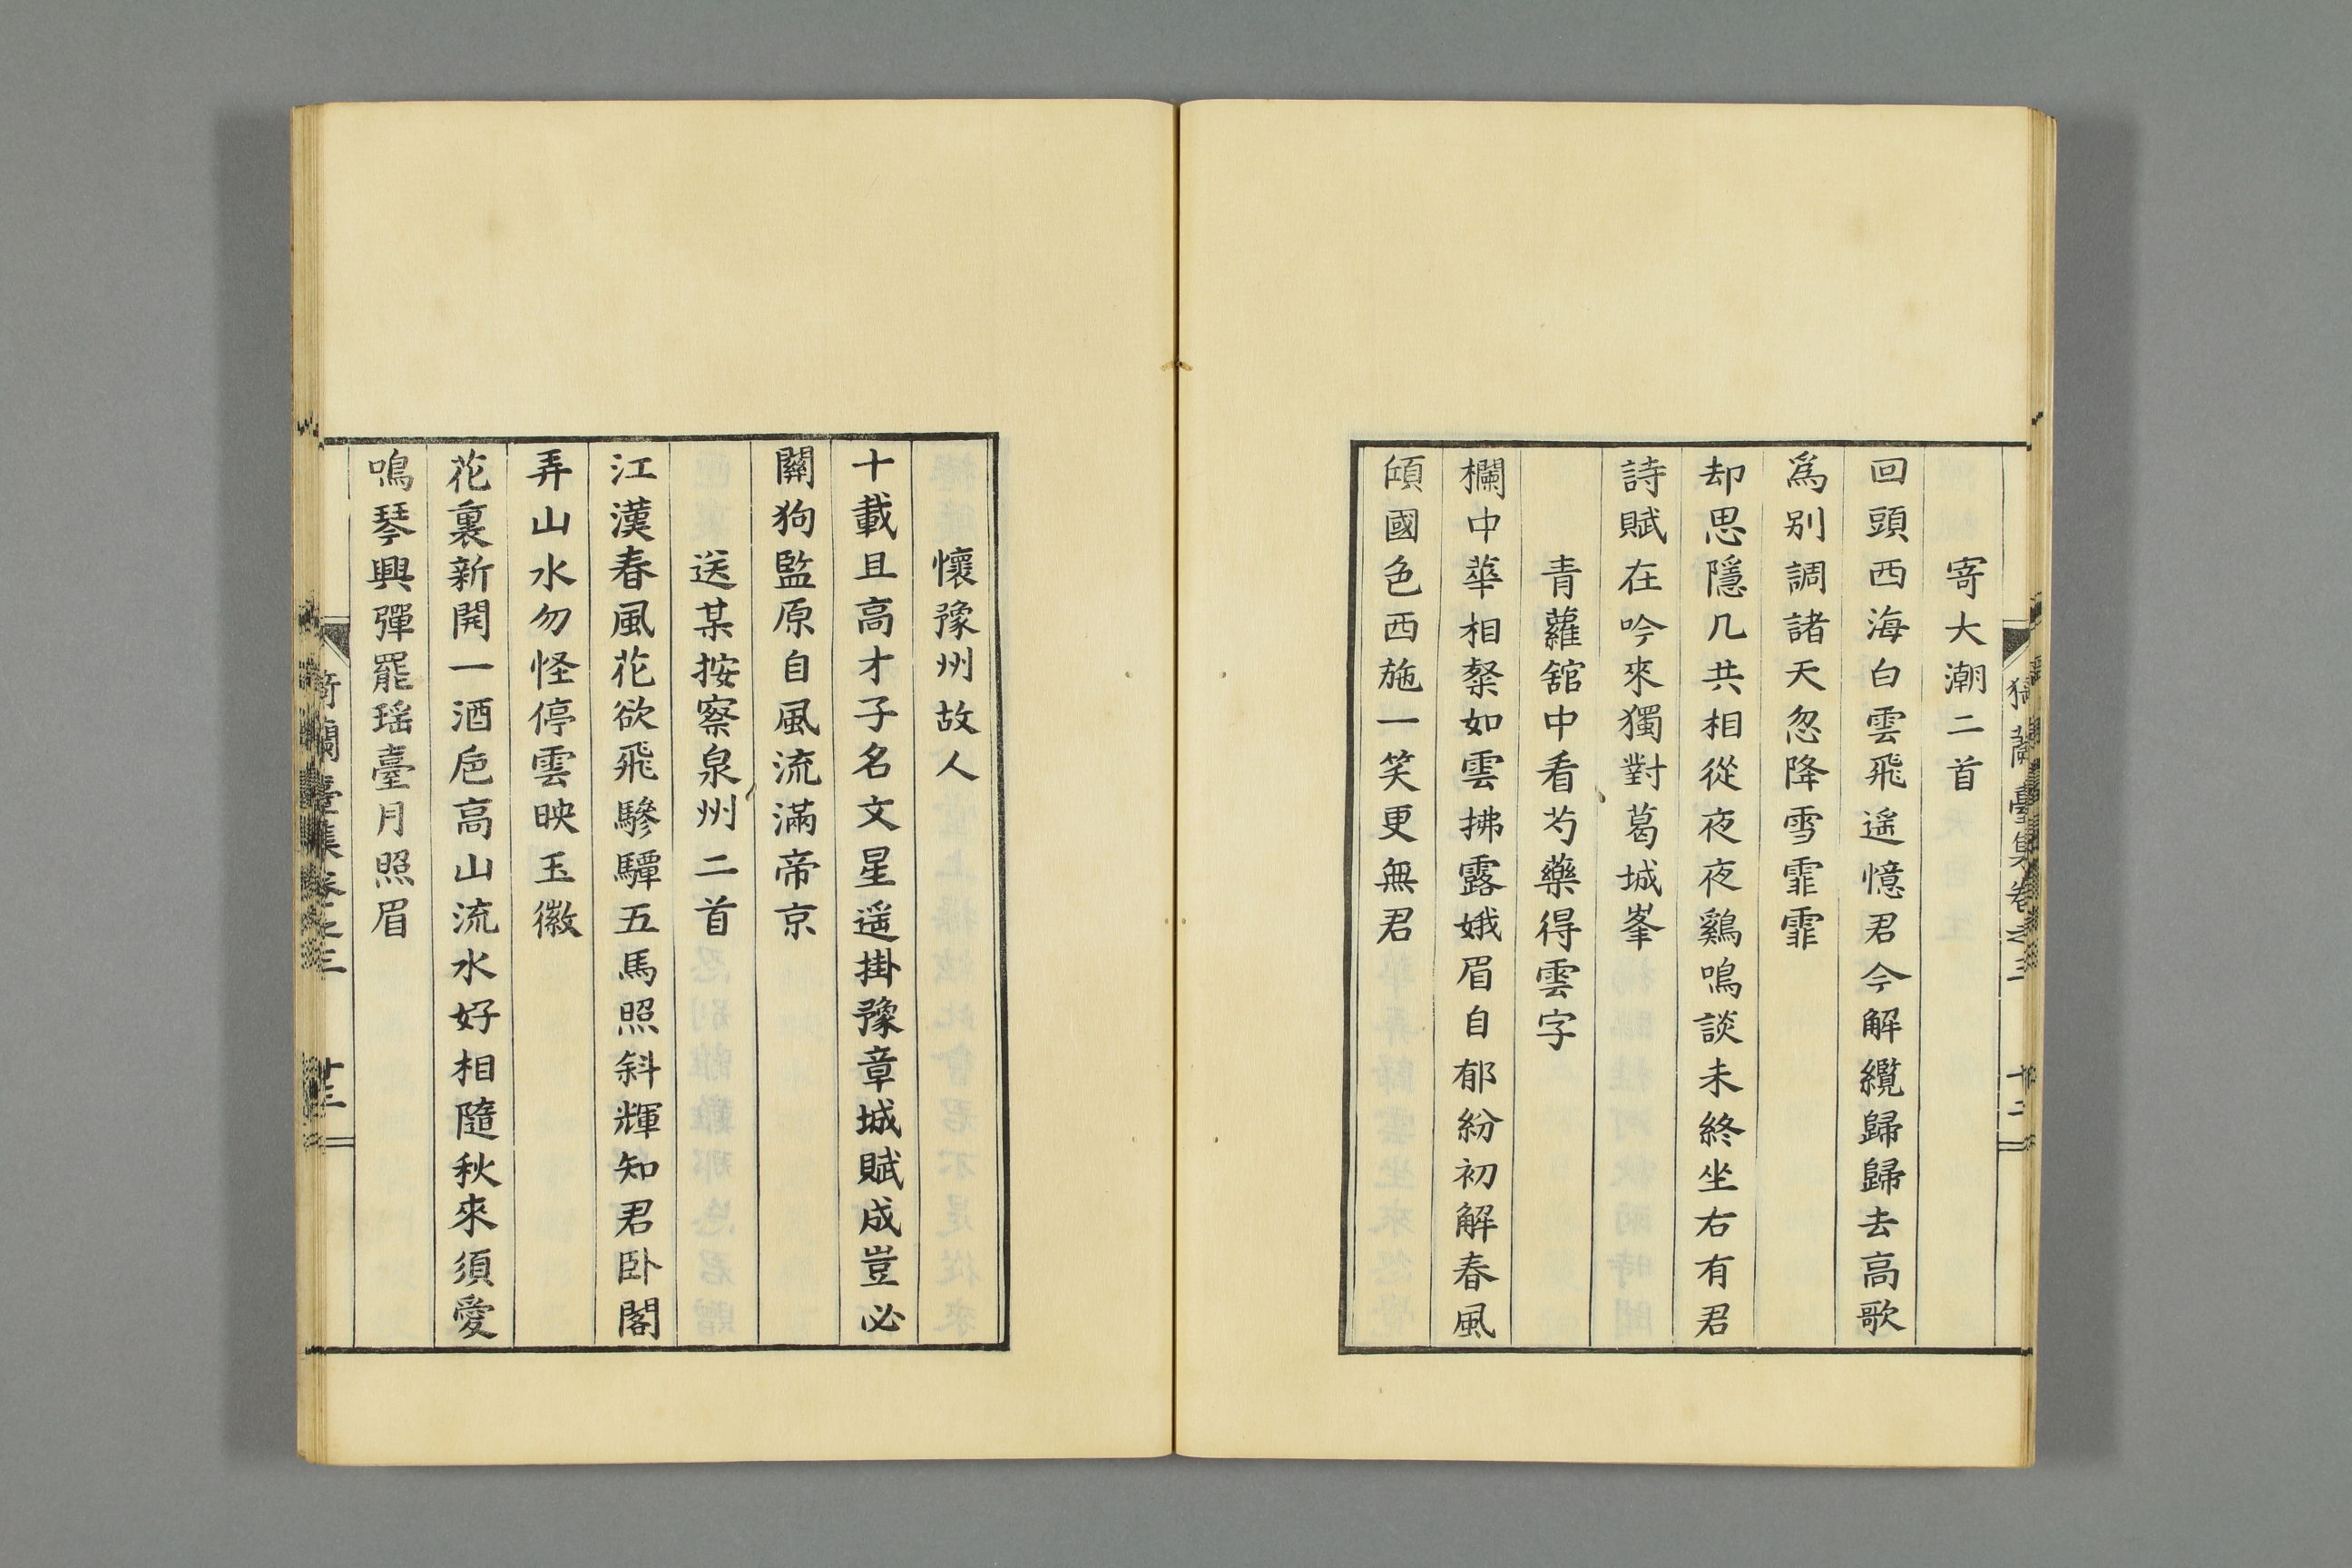 寄大潮二首
回頭西海白雲飛遥憶君今解纜歸歸去高歌
爲别調諸天忽降雪霏霏
却思隱几共相從夜夜鷄鳴談未終坐右有君
詩賦在吟來獨對葛城峯
青蘿舘中看芍藥得雲字
欄中華相粲如雲拂露娥眉自郁紛初解春風
傾國色西施一笑更無君
懷豫州故人
十載且高才子名文星遥掛豫章城賦成豈必
關狗監原自風流滿帝京
送某按察泉州二首
江漢春風花欲飛驂驔五馬照斜輝知君卧閣
弄山水勿怪停雲映玉徽
花裏新開一酒巵高山流水好相隨秋來須愛
鳴琴興彈罷瑶臺月照眉
蘭臺集卷之三 十三